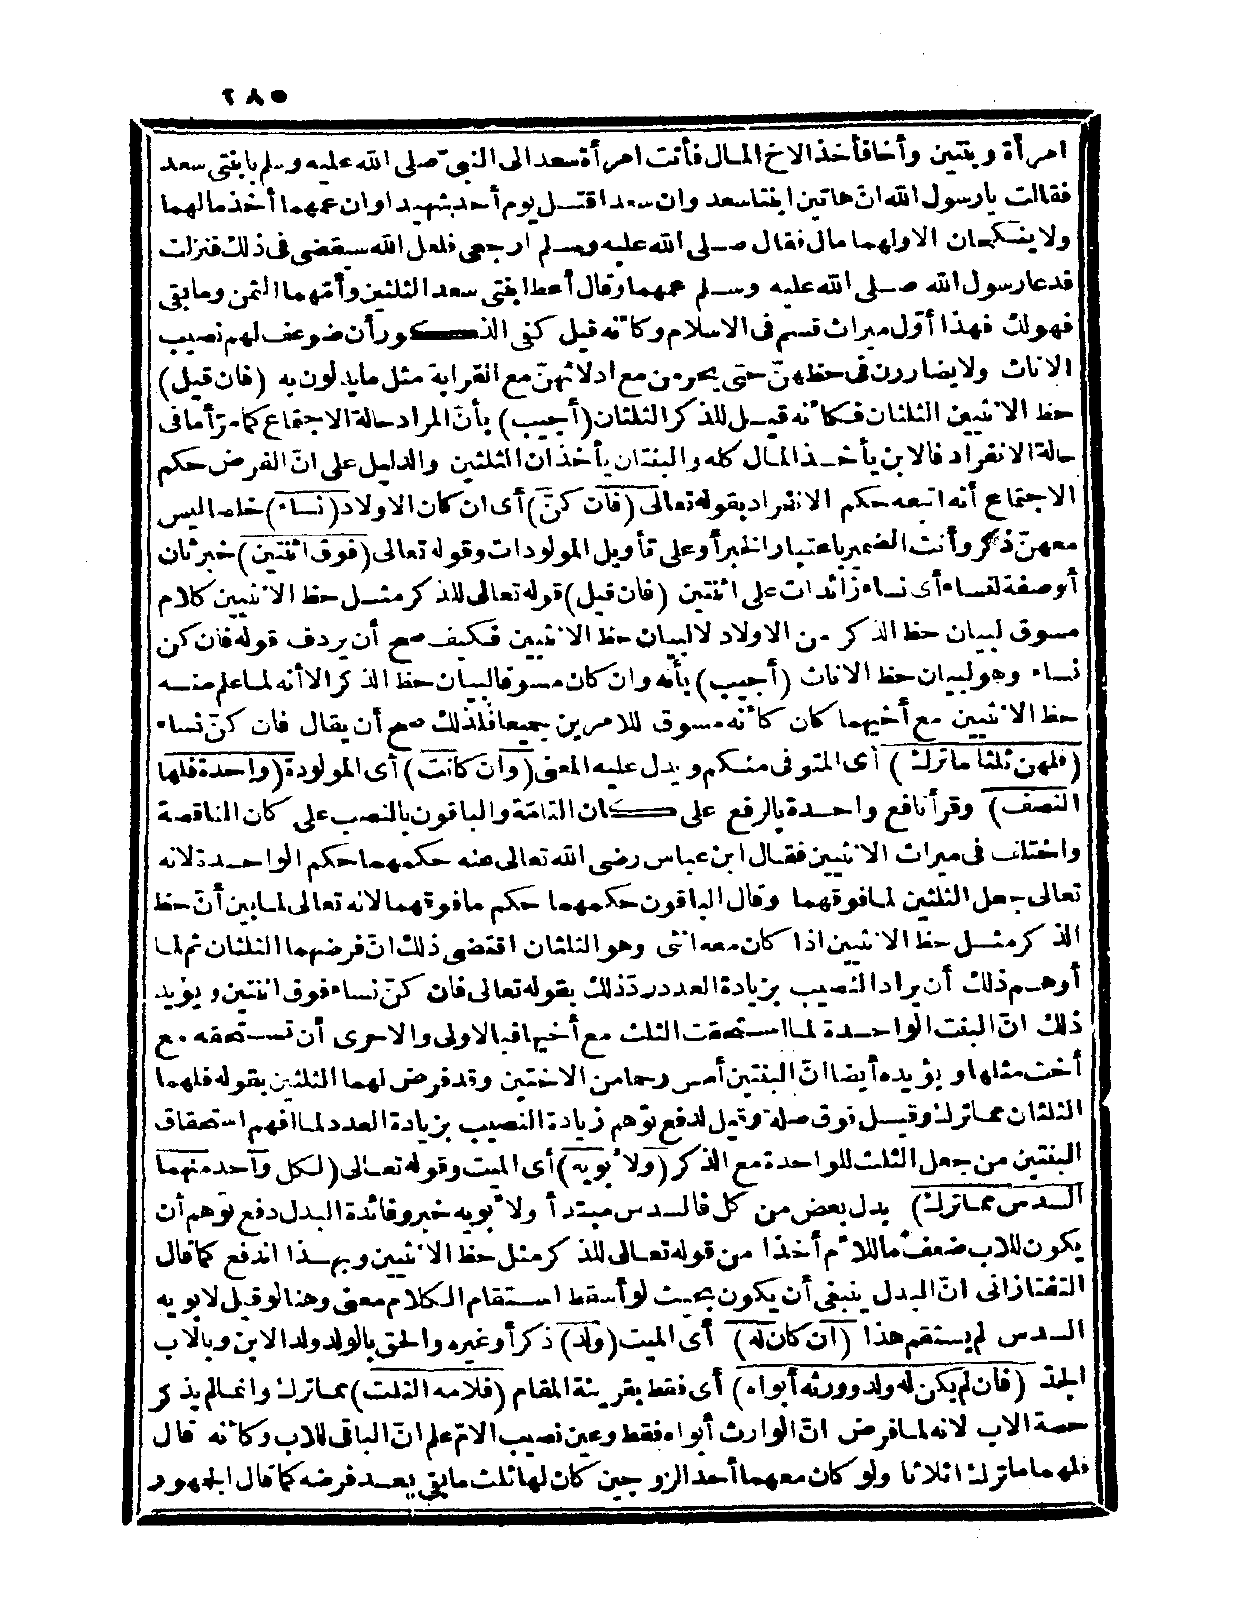 ٢٨٥
امرأة وبنتين وأخا فأخذ الاخ المال فأتت امرأة سعد الى النبىّ صلى الله عليه وسلم بابنتى سعد
فقالت يا رسول الله انّ هاتين ابنتا سعد وان سعدا قتل يوم أحد شهيدا وان عمهما أخذ مالهما
ولا ينكحان الا ولهما مال فقال صلى الله عليه وسلم ارجعى فلعل الله سيقضى فى ذلك فنزلت
فدعا رسول الله صلى الله عليه وسلم عمهما وقال أعط ابنتى سعد الثلثين وأمّهما الثمن وما بقى
فهو لك فهذا أوّل ميراث قسم فى الاسلام وكأنه قيل كفى الذكور أن ضوعف لهم نصيب
الاناث ولا يضاررن فى حظهنّ حتى يحرمن مع ادلائهنّ مع القرابة مثل ما يدلون به (فان قيل)
حظ الانثيين الثلثان فكأنه قيل للذكر الثلثان (أجيب) بأنّ المراد حالة الاجتماع كما مرّ أما فى
حالة الانفراد فالابن يأخذ المال كله والبنتان يأخذان الثلثين والدليل على انّ الغرض حكم
الاجتماع أنه اتبعه حكم الانفراد بقوله تعالى (فان كنّ) أى ان كان الاولاد (نساء) خلصا ليس
معهنّ ذكر وأنث الضمير باعتبار الخبر أو على تأويل المولودات وقوله تعالى (فوق اثنتين) خبر ثان
أو صفة لنساء أى نساء زائدات على اثنتين (فان قيل) قوله تعالى للذكر مثل حظ الانثيين كلام
مسوق لبيان حظ الذكر من الاولاد لا لبيان حظ الانثيين فكيف صح أن يردف قوله فان كن
نساء وهو لبيان حظ الاناث (أجيب) بأنه وان كان مسوقا لبيان حظ الذكر الا أنه لما علم منه
حظ الانثيين مع أخيهما كان كأنه مسوق للامرين جميعا فلذلك صح أن يقال فان كنّ نساء
(فلهن ثلثا ما ترك) أى المتوفى منكم ويدل عليه المعنى (وان كانت) أى المولودة (واحدة فلها
النصف) وقرأ نافع واحدة بالرفع على كان التامّة والباقون بالنصب على كان الناقصة
واختلف فى ميراث الانثيين فقال ابن عباس رضى الله تعالى عنه حكمهما حكم الواحدة لانه
تعالى جعل الثلثين لما فوقهما وقال الباقون حكمهما حكم ما فوقهما لانه تعالى لما بين أنّ حظ
الذكر مثل حظ الانثيين اذا كان معه انثى وهو الثلثان اقتضى ذلك انّ فرضهما الثلثان ثم لما
أوهم ذلك أن يراد النصيب بزيادة العدد ردّ ذلك بقوله تعالى فان كنّ نساء فوق اثنتين ويؤيد
ذلك انّ البنت الواحدة لما استحقت الثلث مع أخيها فبالاولى والاحرى أن تستحقه مع
أخت مثلها ويؤيده أيضا انّ البنتين أمس رحما من الاختين وقد فرض لهما الثلثين بقوله فلهما
الثلثان مما ترك وقيل فوق صلة وقيل لدفع توهم زيادة النصيب بزيادة العدد لما افهم استحقاق
البنتين من جعل الثلث للواحدة مع الذكر (ولأبويه) أى الميت وقوله تعالى (لكل واحد منهما
السدس مما ترك) بدل بعض من كل فالسدس مبتدأ ولأبويه خبر وفائدة البدل دفع توهم أن
يكون للاب ضعف ما للأم أخذا من قوله تعالى للذكر مثل حظ الانثيين وبهذا اندفع كما قال
التفتازانى انّ البدل ينبغى أن يكون بحيث لو أسقط استقام الكلام معنى وهنا لو قيل لابويه
السدس لم يستقم هذا (ان كان له) أى الميت (ولد) ذكر أو غيره والحق بالولد ولد الابن وبالاب
الجدّ (فان لم يكن له ولد وورثه أبواه) أى فقط بقرينة المقام (فلامه الثلث) مما ترك وانما لم يذكر
حصة الاب لانه لما فرض انّ الوارث أبواه فقط وعين نصيب الامّ علم انّ الباقى للاب وكأنه قال
فلهما ما ترك اثلاثا ولو كان معهما أحد الزوجين كان لها ثلث ما بقى بعد فرضه كما قال الجمهور